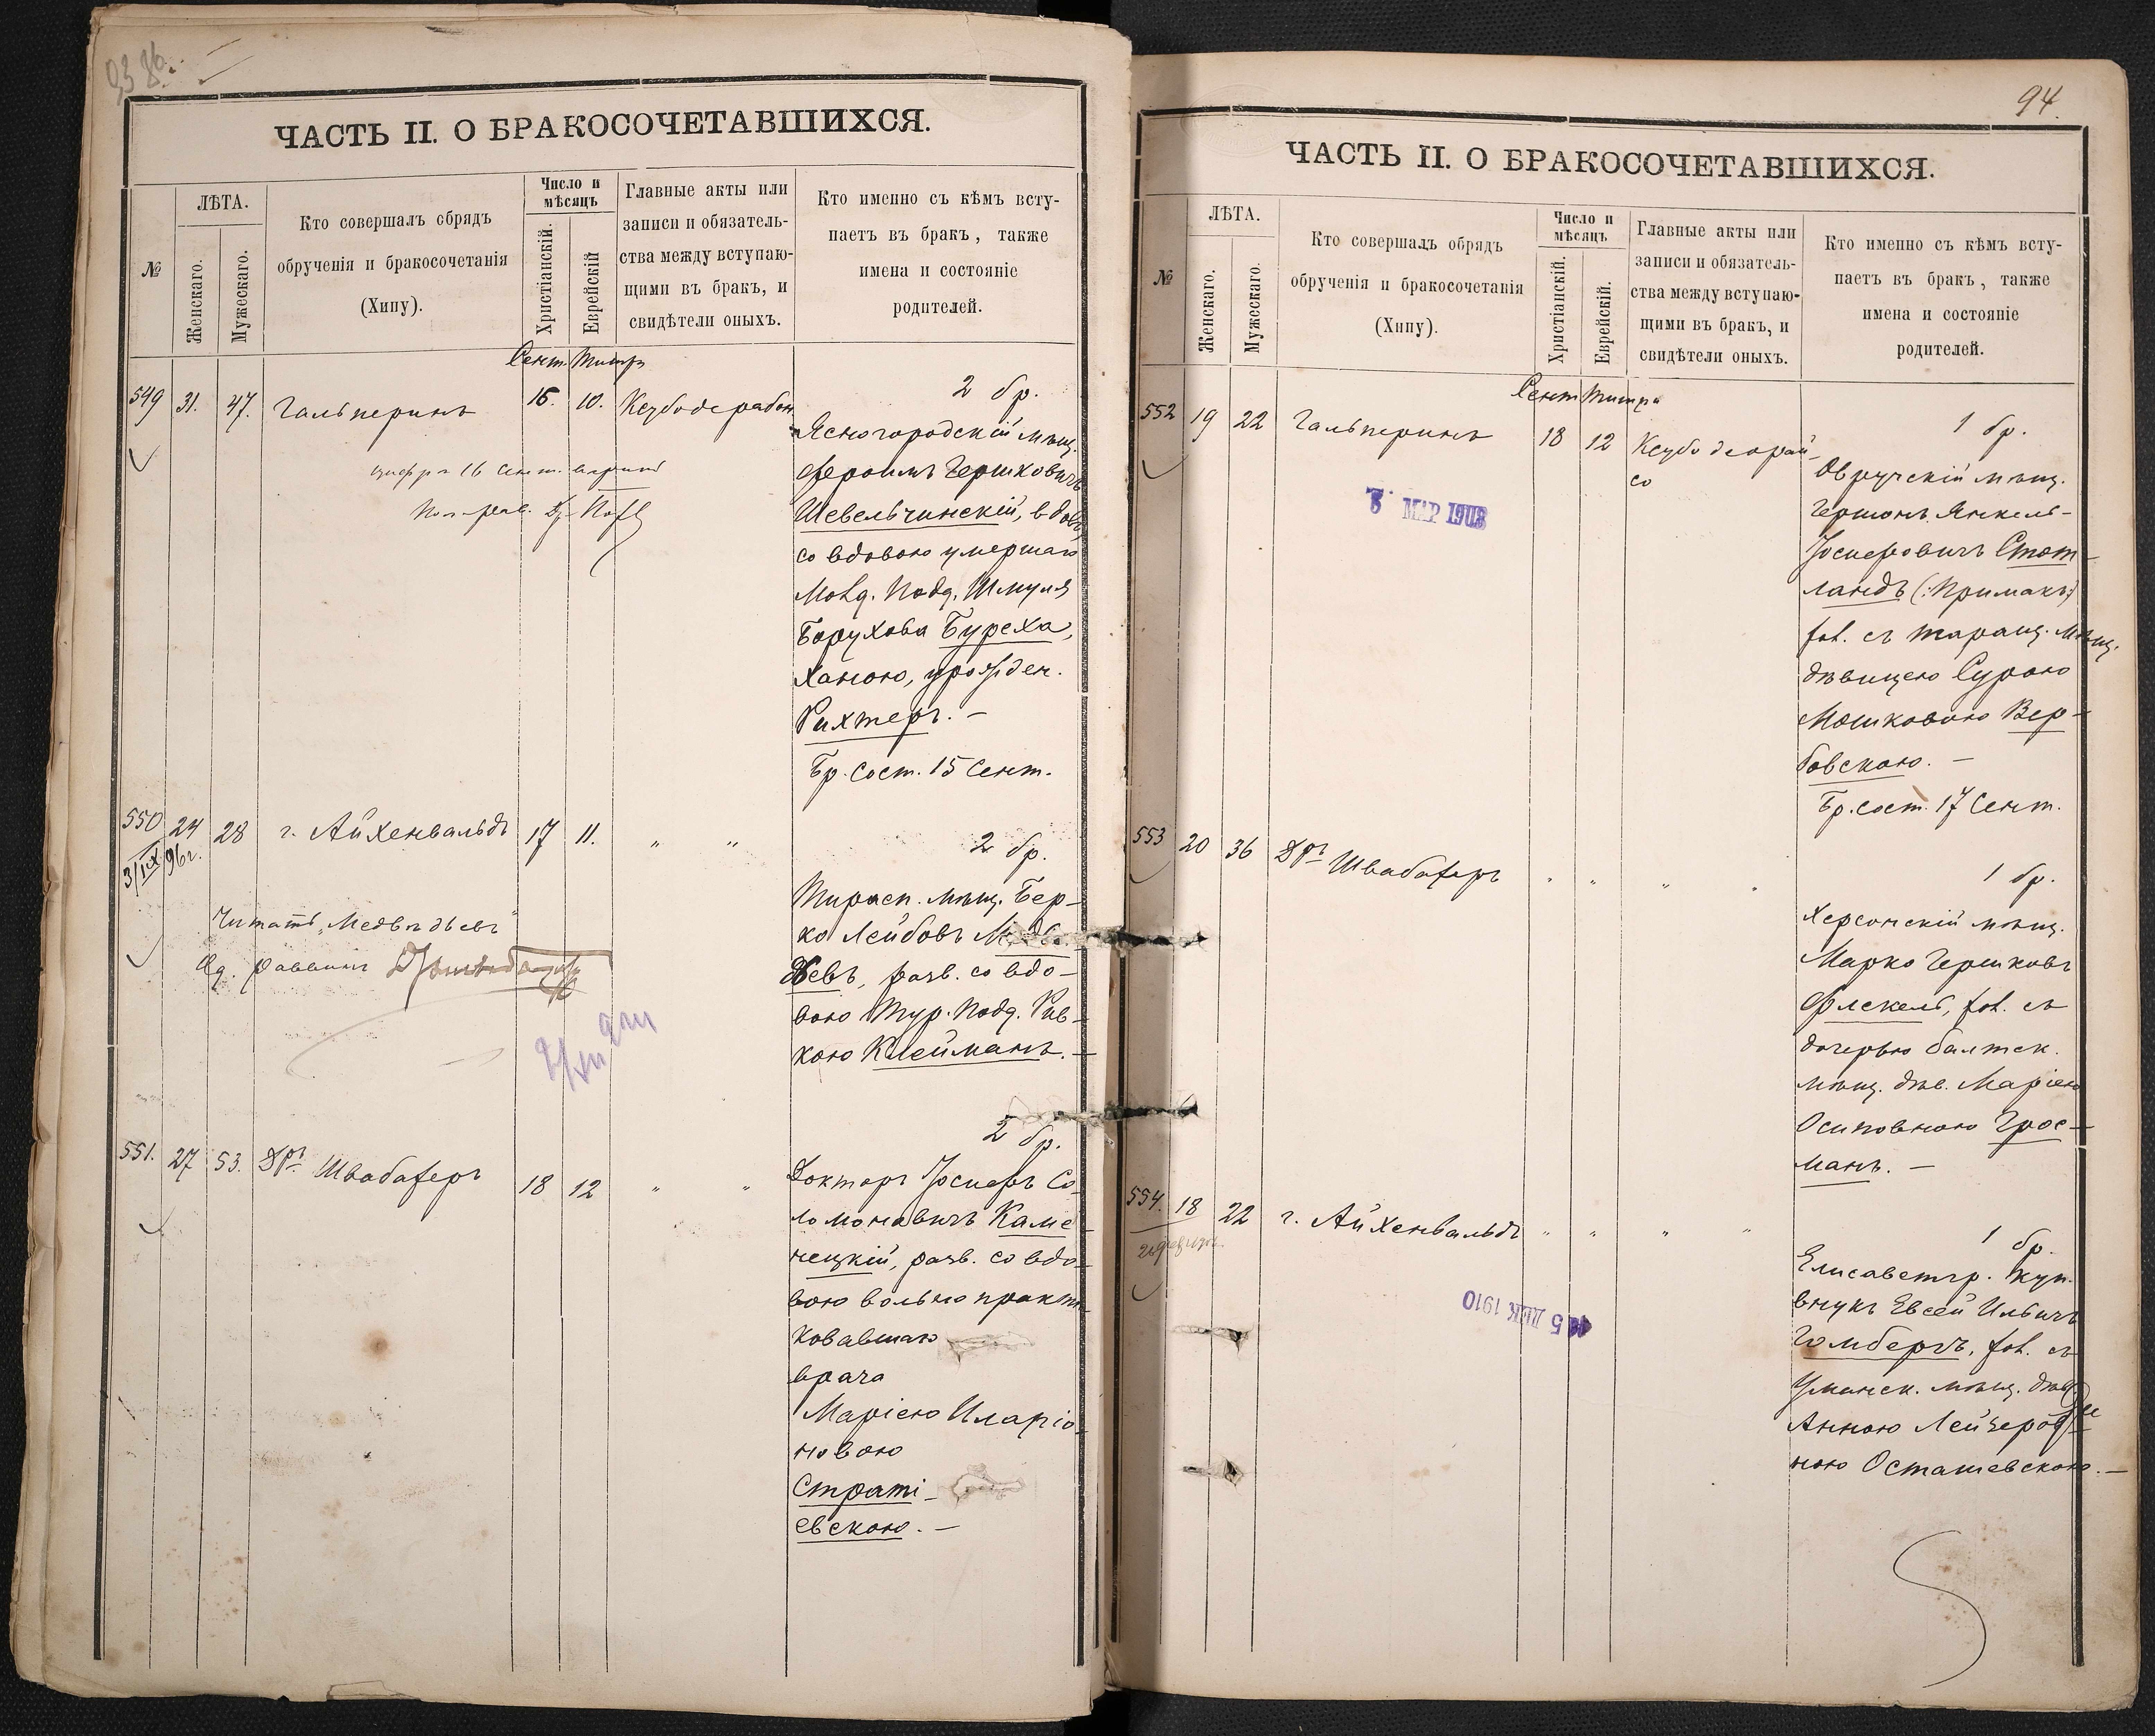 ЧАСТЬ II. О БРАКОСОЧЕТАВШИХСЯ.
№
ЛѢТА.
Женскаго.
Мужескаго.
Кто совершалъ обрядъ
обрученія и бракосочетанія
(Хипу).
Число и
мѣсяцъ
Христіанскій.
Еврейскій
Главные акты или
записи и обязатель-
ства между вступаю-
щими въ бракъ, и
свидѣтели оныхъ.
Кто именно съ кѣмъ всту-
паетъ въ бракъ, также
имена и состояніе
родителей.
Сент. Тишри
549 31. 47. Гальперинъ 16. 10.
2 бр.
Ясногородскій мѣщ.
Фроимъ Гершковичъ
Шевельчинскій, вдов.
со вдовою умершаго
Подд. Шмуля
Борухова Буреха,
Ханою, урожден.
Рихтеръ. —
Бр. сост. 15 Сент.
цифра 16 Сент.
550 24 28 г. Айхенвальдъ 17 11. " "
3/IX 96 г.
2 бр.
Тирасп. мѣщ. Бер-
ко Лейбовъ
девъ, разв. со вдо-
вою Тур. Подд. Рив-
кою Клейманъ. —
Читать „Медвѣдевъ"
Од. Раввинъ
551. 27 53. Д-ръ Швабахеръ 18 12 " "
2 бр.
Докторъ Іосифъ Со-
ломоновичъ Каме-
нецкій, разв. со вдо-
вою вольно практи-
ковавшаго
врача
Маріею Иларіо-
новою
Страті-
евскою. —
94.
ЧАСТЬ II. О БРАКОСОЧЕТАВШИХСЯ.
№
ЛѢТА.
Женскаго.
Мужескаго.
Кто совершалъ обрядъ
обрученія и бракосочетанія
(Хипу).
Число и
мѣсяцъ
Христіанскій.
Еврейскій.
Главные акты или
записи и обязатель-
ства между вступаю-
щими въ бракъ, и
свидѣтели оныхъ.
Кто именно съ кѣмъ всту-
паетъ въ бракъ, также
имена и состояніе
родителей.
Сент Тишри
552 19 22 Гальперинъ 18 12
МАР 1903
1 бр.
Овручскій мѣщ.
Гершонъ Янкель-
Іосифовичъ Стот-
ландъ (: Примакъ:)
хол. съ таращ. мѣщ.
дѣвицею Сурою
Мошковою Вер-
бовскою. —
Бр. сост. 17 Сент.
553 20 36 Д-ръ Швабахеръ " " " "
1 бр.
Херсонскій мѣщ.
Марко Гершковъ
Флекель, хол. съ
дочерью балтск.
мѣщ. дѣв. Маріею
Осиповною Грос-
манъ. —
554. 18 22 г. Айхенвальдъ " " " "
5 ДЕК 1910
1 бр.
Елисаветгр. куп.
внукъ Евсей Ильичъ
Гомбергъ, хол. съ
Уманск. мѣщ. дѣв.
Анною Лейзеров-
ною Осташевскою. —